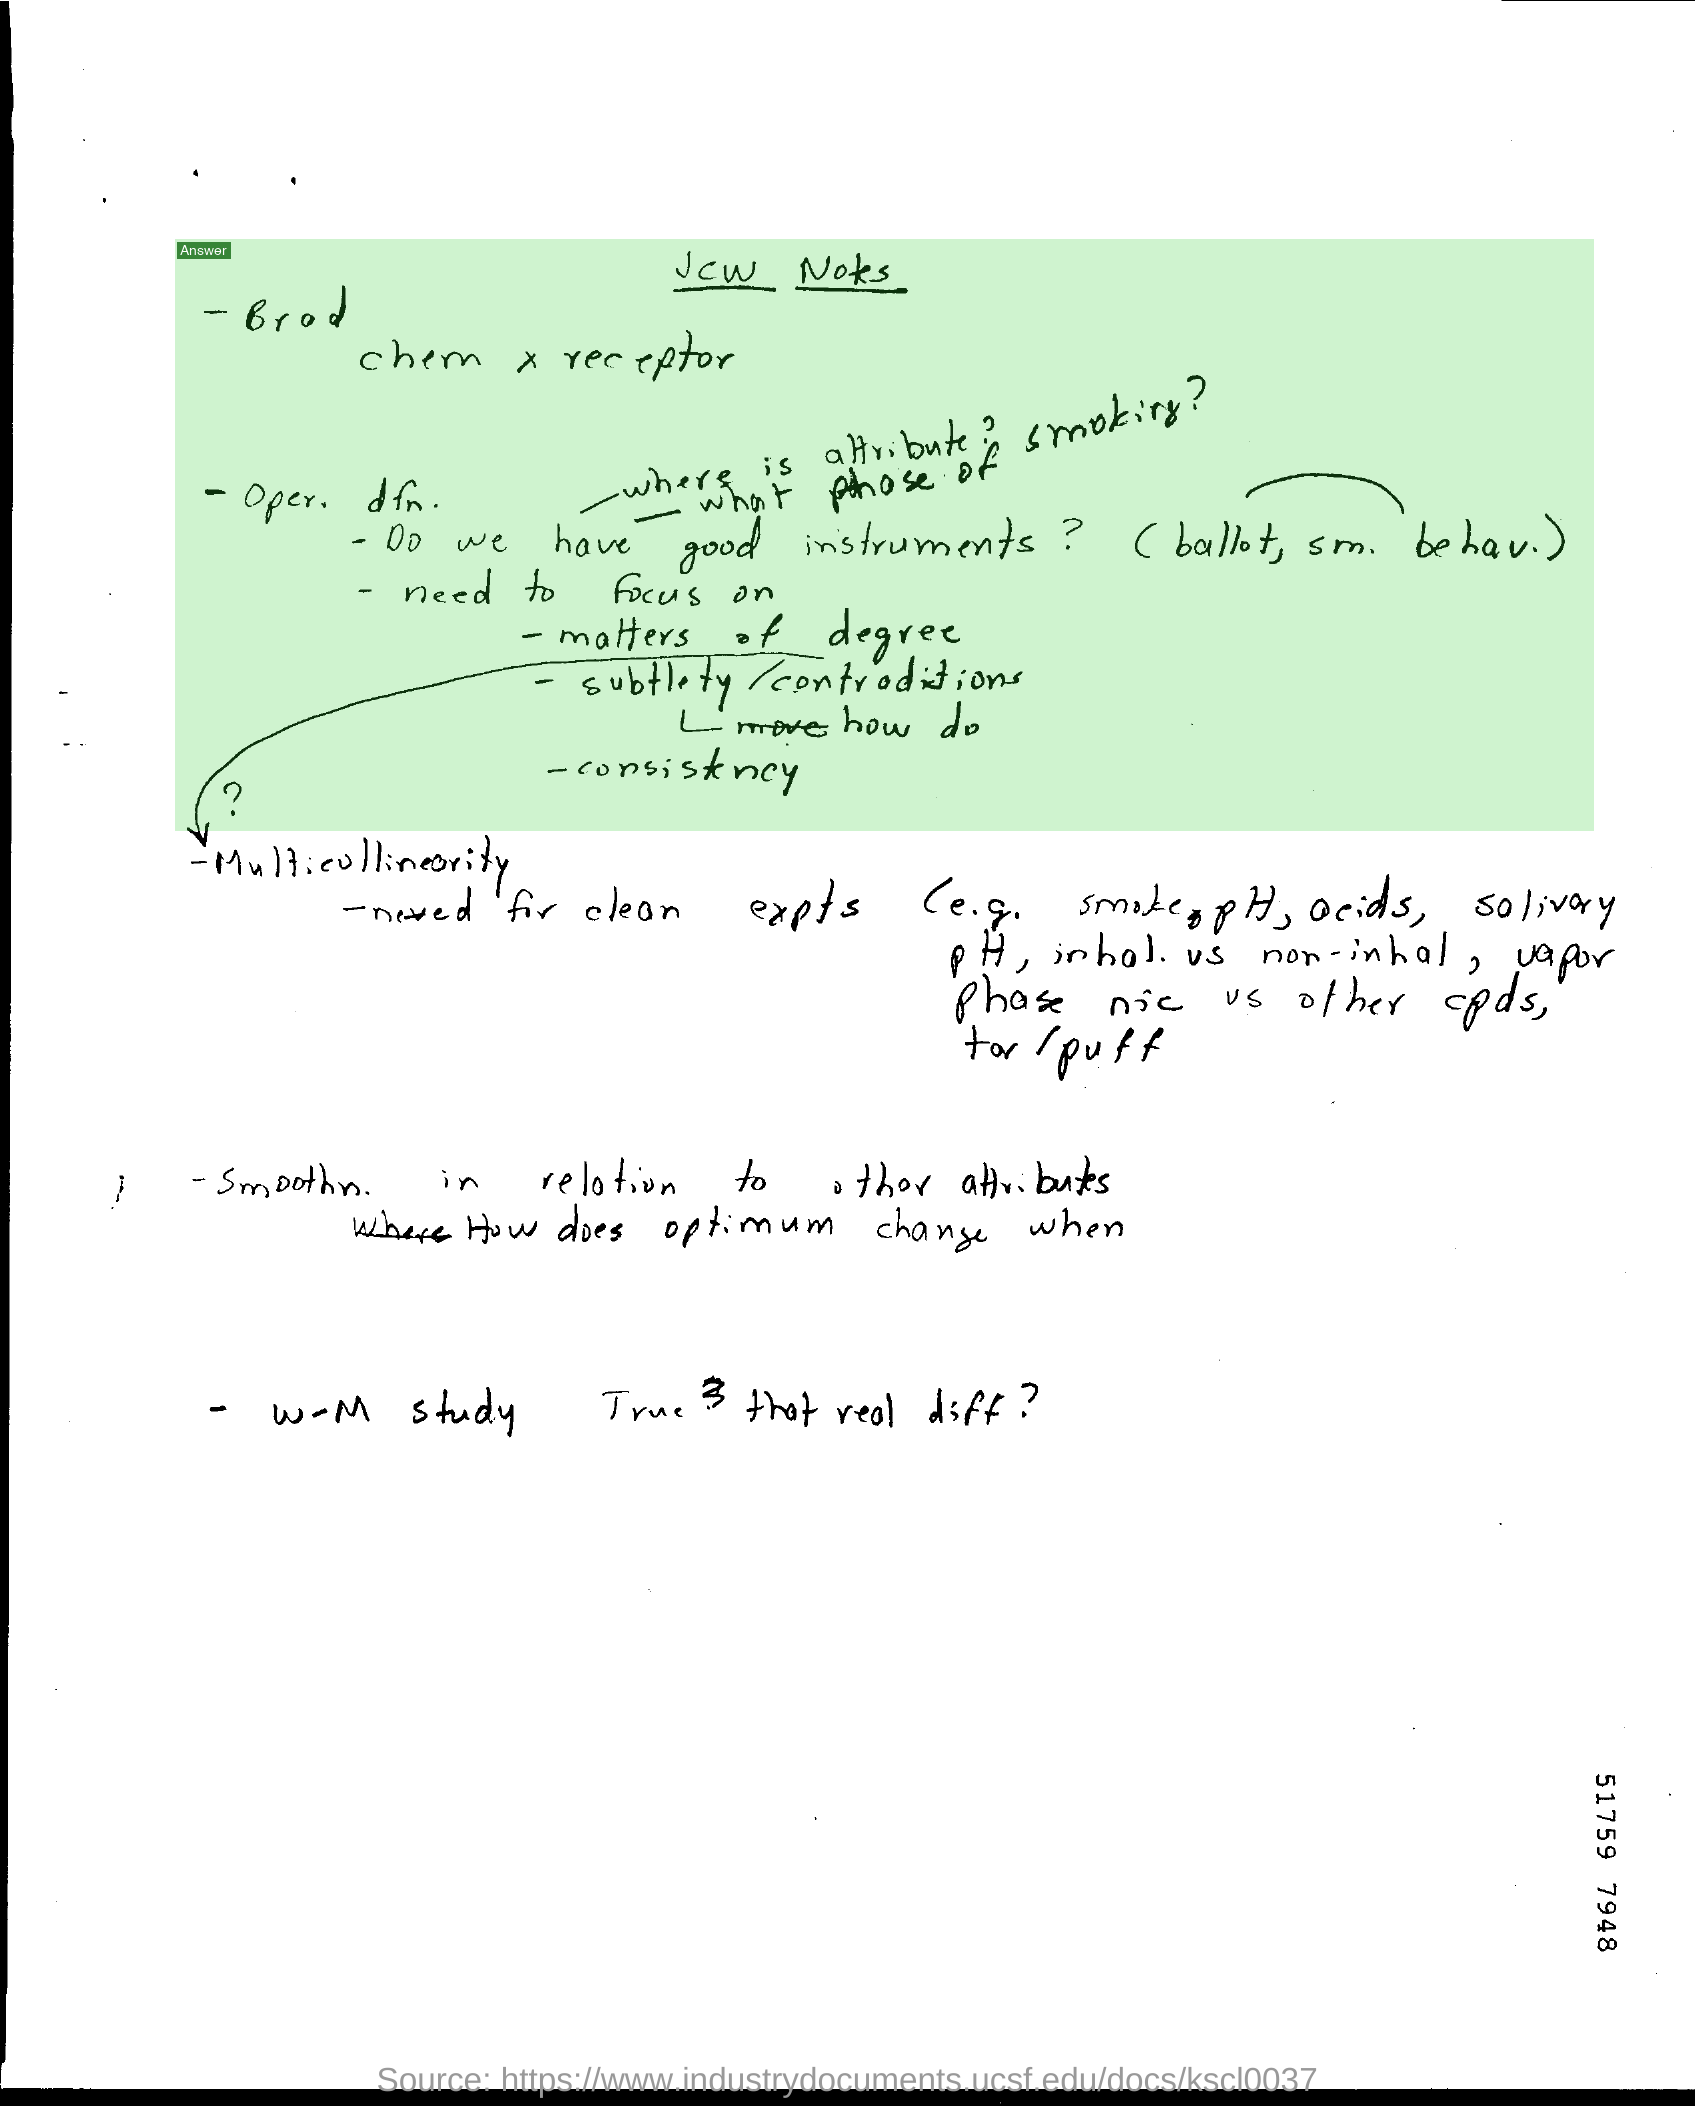 Answer
JCW Notes
- Brad
chem x receptor
- where is attribute?
- what phase of smoking?
- Oper. dfn.
- Do we have good instruments? (ballot, sm. behav.)
- need to focus on
- matters of degree
- subtlety/contraditions
move how do
- consistency
?
- Multicollinearity
- need for clean expts (e.g. smoke, pH, acids, salivary
pH, inhal. vs non-inhal, vapor
phase nic vs other cpds,
tar/puff
- Smoothn. in relation to other attributes
Where How does optimum change when
- W-M study True that real diff?
51759 7948
Source: https://www.industrydocuments.ucsf.edu/docs/kscl0037